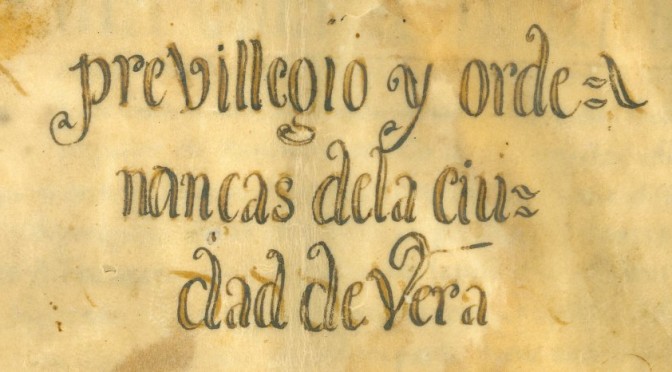 previllegio y orde=
nancas dela ciu=
dad de Vera